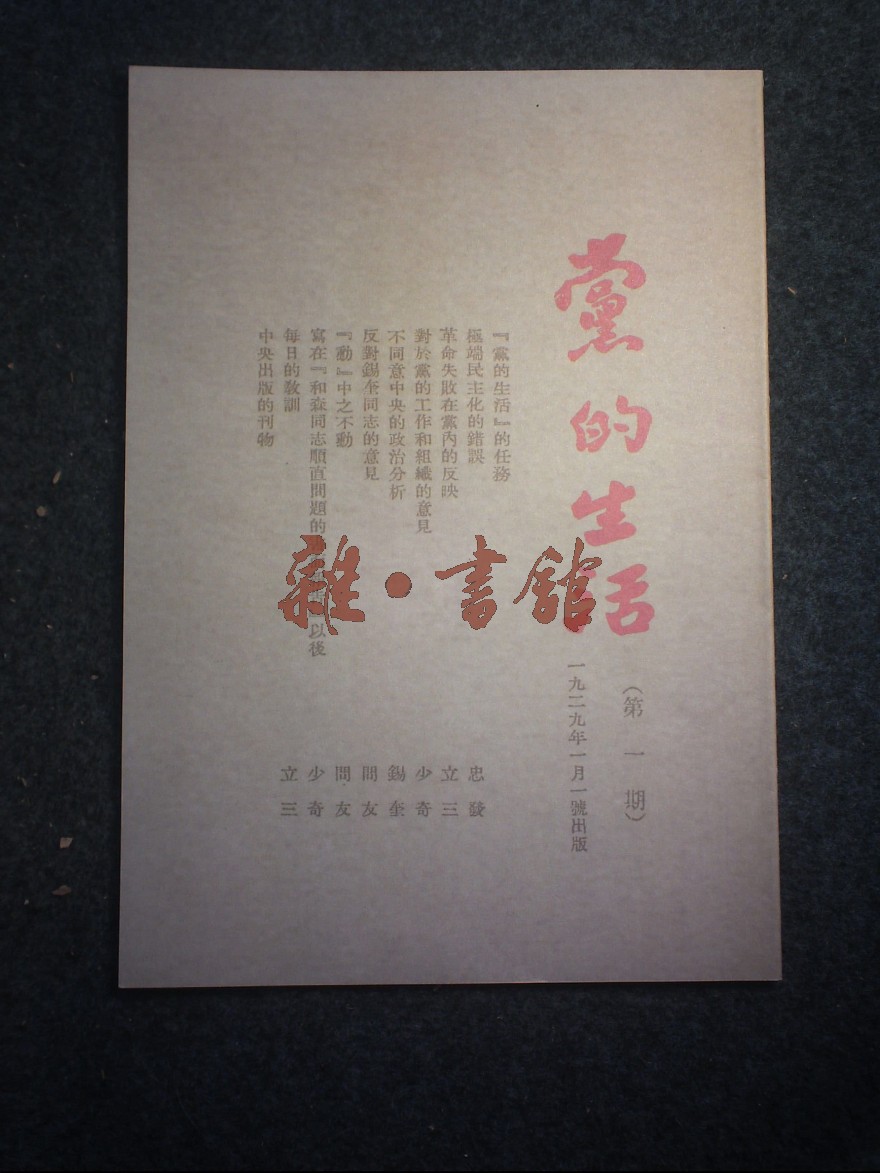 黨的生活
（第一期）
一九二九年一月一號出版
『黨的生活』的任務
極端民主化的錯誤 忠發
革命失敗在黨內的反映 立三
對於黨的工作和組織的意見 少奇
不同意中央的政治分析 錫奎
反對錫奎同志的意見 問友
『動』中之不動 問友
寫在『和森同志順直問題的 以後 少奇
每日的教訓 立三
中央出版的刊物
雜●書館